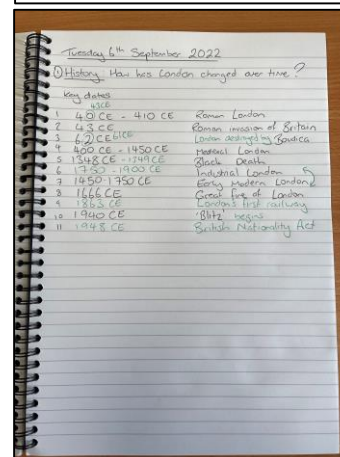 Tuesday 6th September 2022
① History: How has London changed over time?
Key dates
43CE
1 40 CE - 410 CE Roman London
2 43 CE Roman invasion of Britain
3 62 CE 61CE London destroyed by Boudica
4 400 CE - 1450 CE Medieval London
5 1348 CE - 1349 CE Black Death
6 1750 - 1900 CE Industrial London
7 1450-1750 CE Early Modern London
8 1666 CE Great fire of London
9 1863 CE London's first railway
10 1940 CE 'Blitz' begins
11 1948 CE British Nationality Act